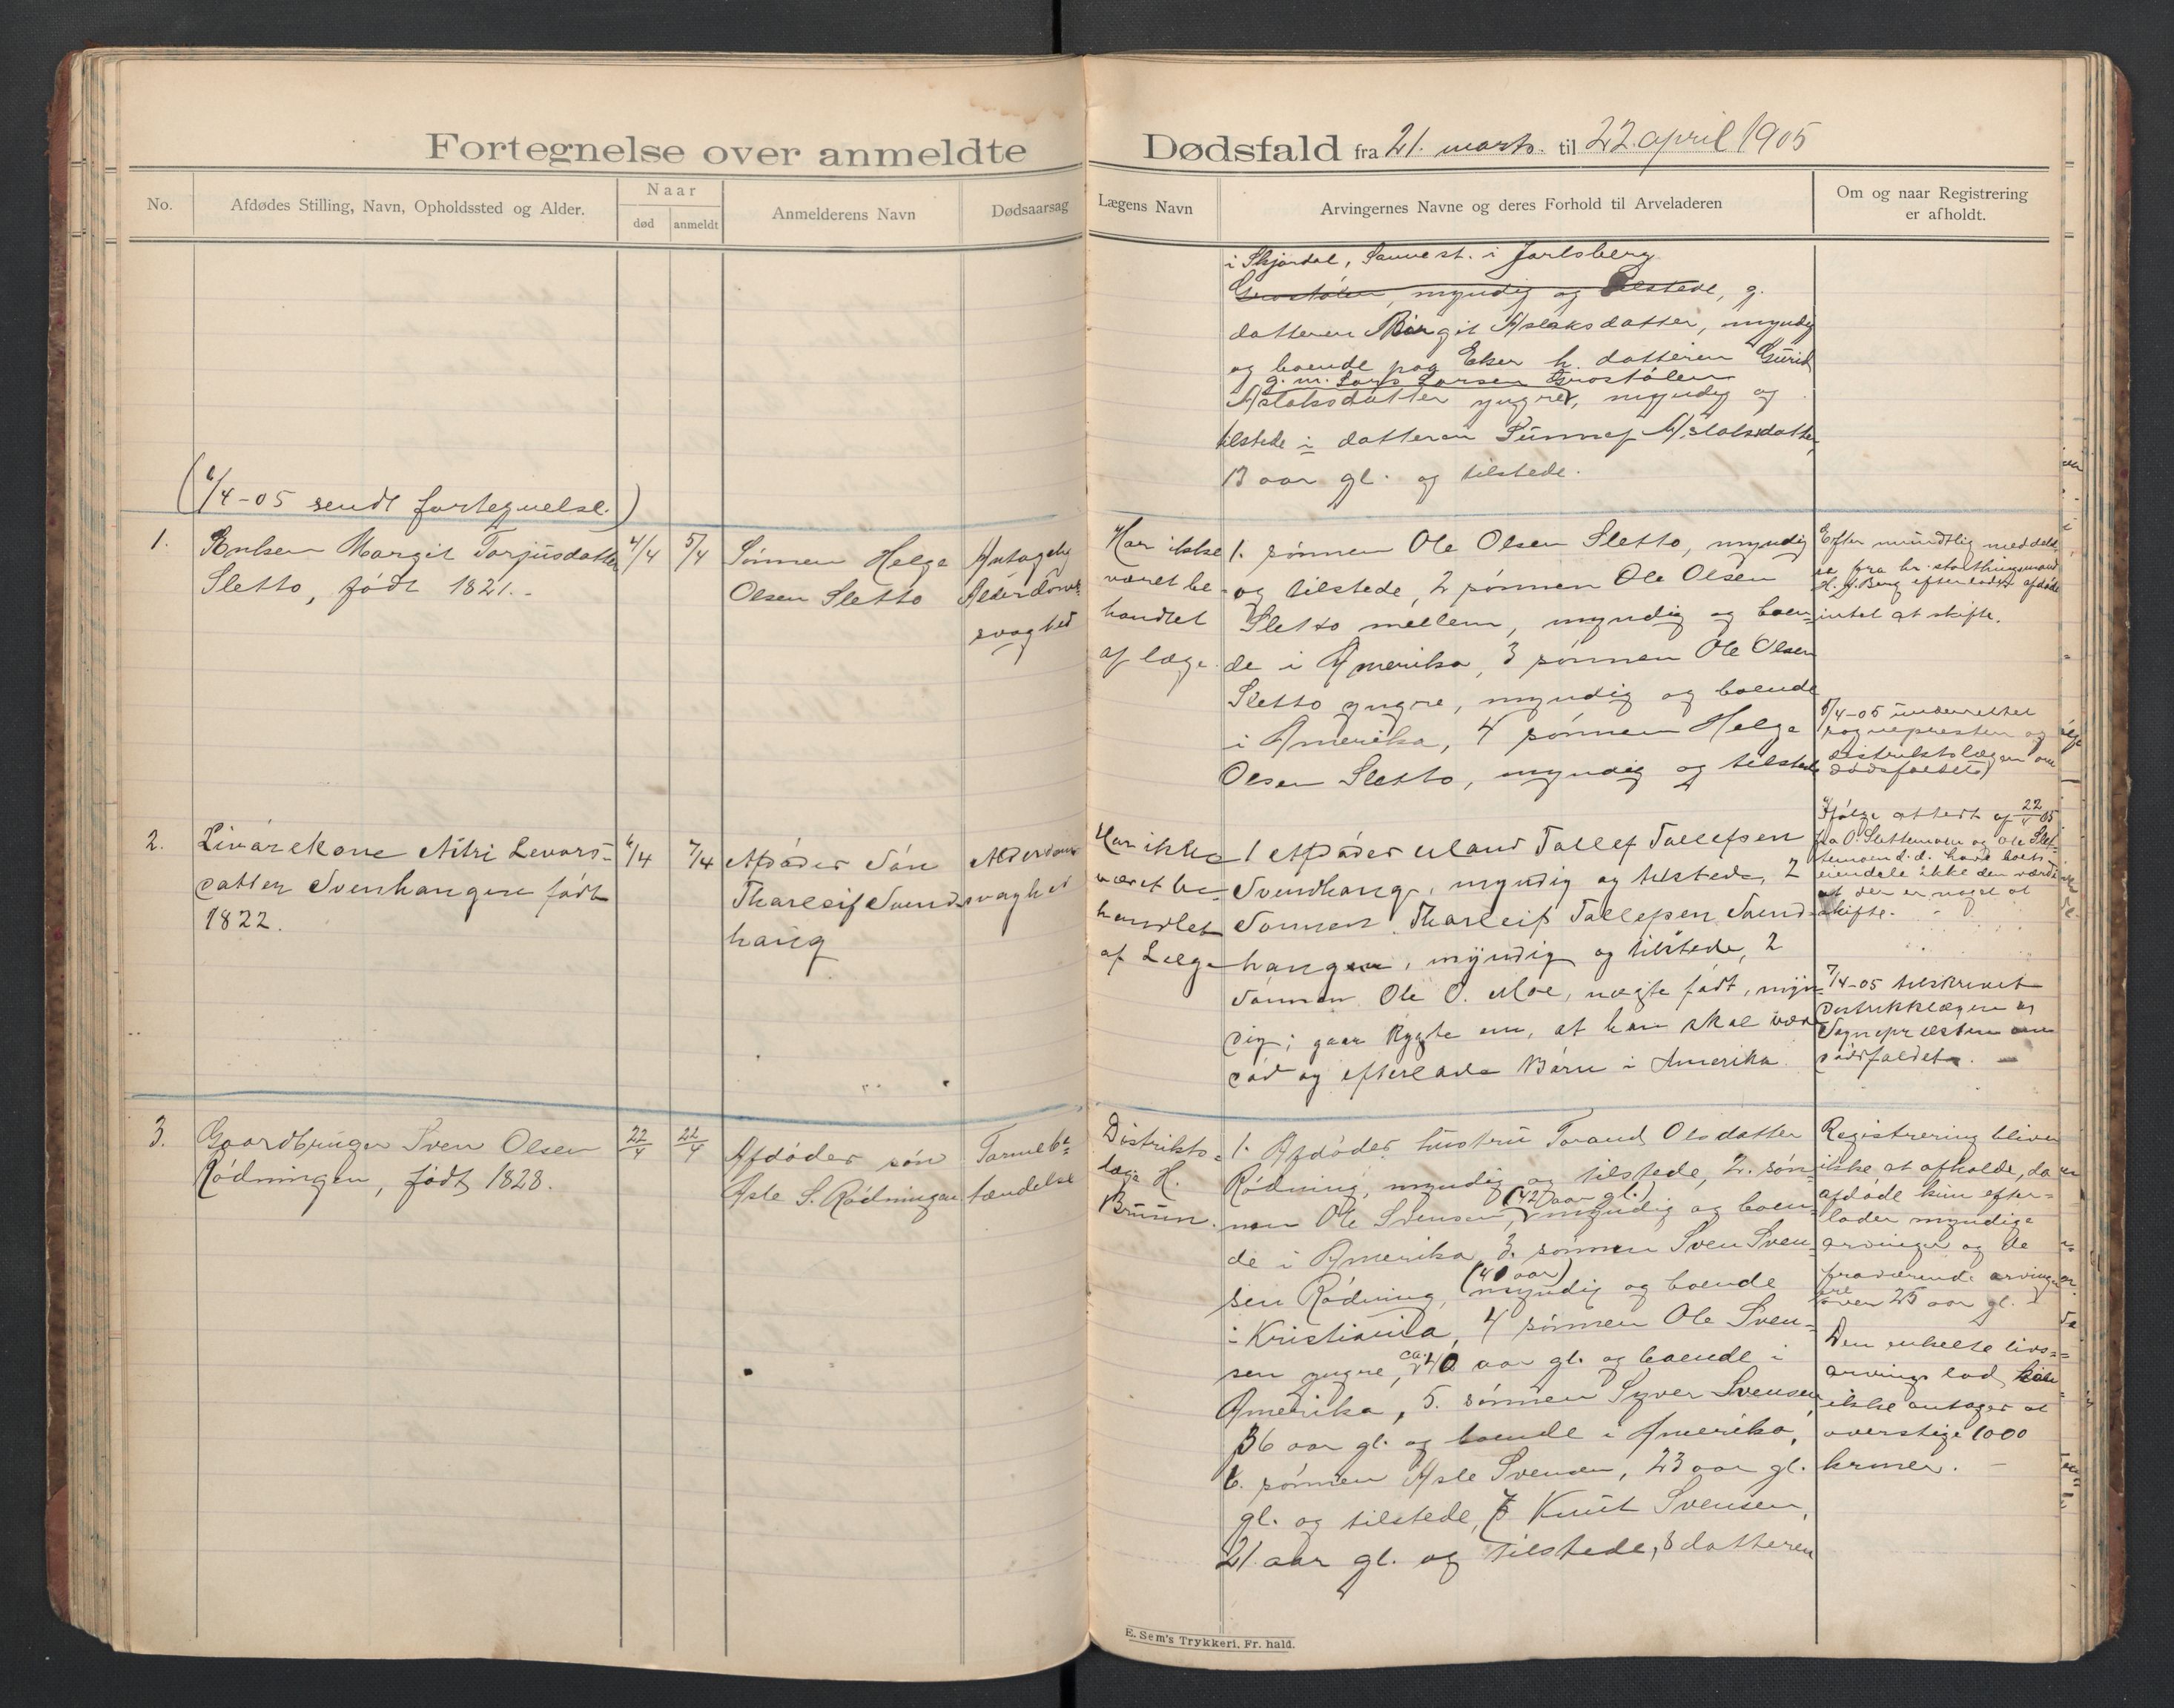 Fortegnelse over anmeldte Dødsfald fra 21. marts. til 22. april 1905
No.
Afdødes Stilling, Navn, Opholdssted og Alder.
Naar
død
anmeldt
Anmelderens Navn
Dødsaarsag
Lægens Navn
Arvingernes Navne og deres Forhold til Arveladeren
Om og naar Registrering
er afholdt.
i Skjørdal, Sanne st. i Jarlsberg
Grostølen, myndig og tilstede, g.
datteren Birgit Aslaksdatter, myndig
og boende paa Eker h. datteren Gurid
g. m. Lars Larsen Grostølen
Aslaksdatter yngre, myndig og
tilstede i datteren Sünnef Aslaksdatter,
13 aar gl. og tilstede.
(6/4-05 sendt fortegnelse.)
1.
Enken Margit Torjüsdatter
Sletto, født 1821.-
4/4
5/4
Sønnen Helge
Olsen Sletto
Antagelig
Alderdoms
svaghed
Har ikke
været be-
handlet
af læge.
1. sønnen Ole Olsen Sletto, myndig
og tilstede, 2 sønnen Ole Olsen
Sletto mellem, myndig og boen-
de i Amerika, 3 sønnen Ole Olsen
Sletto yngre, myndig og boende
i Amerika, 4 sønnen Helge
Olsen Sletto, myndig og tilstede
Efter mündtlig meddelel-
se fra hr. storthingsmand
Berg efterlader afdøde
intet at skifte.
5/4-05 ünderrettet
sognepresten og
distriktslægen om
dødsfaldet)
2.
Livørekone Aitri Levors-
datter Svenhangen født
1822.
6/4
7/4
Afdødes Søn
Tharleif Svend-
hang
Alderdoms
svaghed
Har ikke
været be-
handlet
af Læge
1 Afdødes Mand Tallef Tallefsen
Svendhang, myndig og tilstede, 2
Sønnen Tharleif Tallefsen Svend-
hangen, myndig og tilstede, 2
Sønnen Ole O. Moe, uægte født, myn-
dig; gaar Rygte om, at han skal være
død og efterlade Børn i Amerika.
Ifølge attest af 22/4 05
fra O. Slettemoen og Ole Slet-
temoen d.d. havd boets
eiendele ikke den værdi
at der er noget at
skifte.
7/4-05 tilskrevet
Distriktslægen og
Sognepresten om
dødsfaldet. -
3.
Gaardbruger Sven Olsen
Rødningen, født 1828.
22/4
22/4
Afdødes søn
Asle S. Rødningen
Tarmebe-
tændelse
Distrikts-
læge H.
Brüün.
1. Afdødes hustrü Torand Olsdatter
Rødning, myndig og tilstede, 2. søn-
nen Ole Svensen, (42 aar gl.) myndig og boen-
de i Amerika, 3. sønnen Sven Sven-
sen Rødning, (40 aar) myndig og boende
i Kristiania, 4 sønnen Ole Sven-
sen yngre, ca. 40 aar gl. og boende i
Amerika, 5. sønnen Syver Svensen
36 aar gl. og boende i Amerika,
6. sønnen Asle Svensen, 23 aar gl.
gl. og tilstede, 7 Knüt Svensen,
21 aar gl. og tilstede, 8 datteren
Registrering bliver
ikke at afholde, da
afdøde kün efter-
lader myndige
arvinger og de
fraværende arvinger
ere over 25 aar gl. -
Den enkelte livs-
arvings lod kan
ikke antages at
overstige 1000
kroner. -
E. Sem's Trykkeri. Fr. hald.